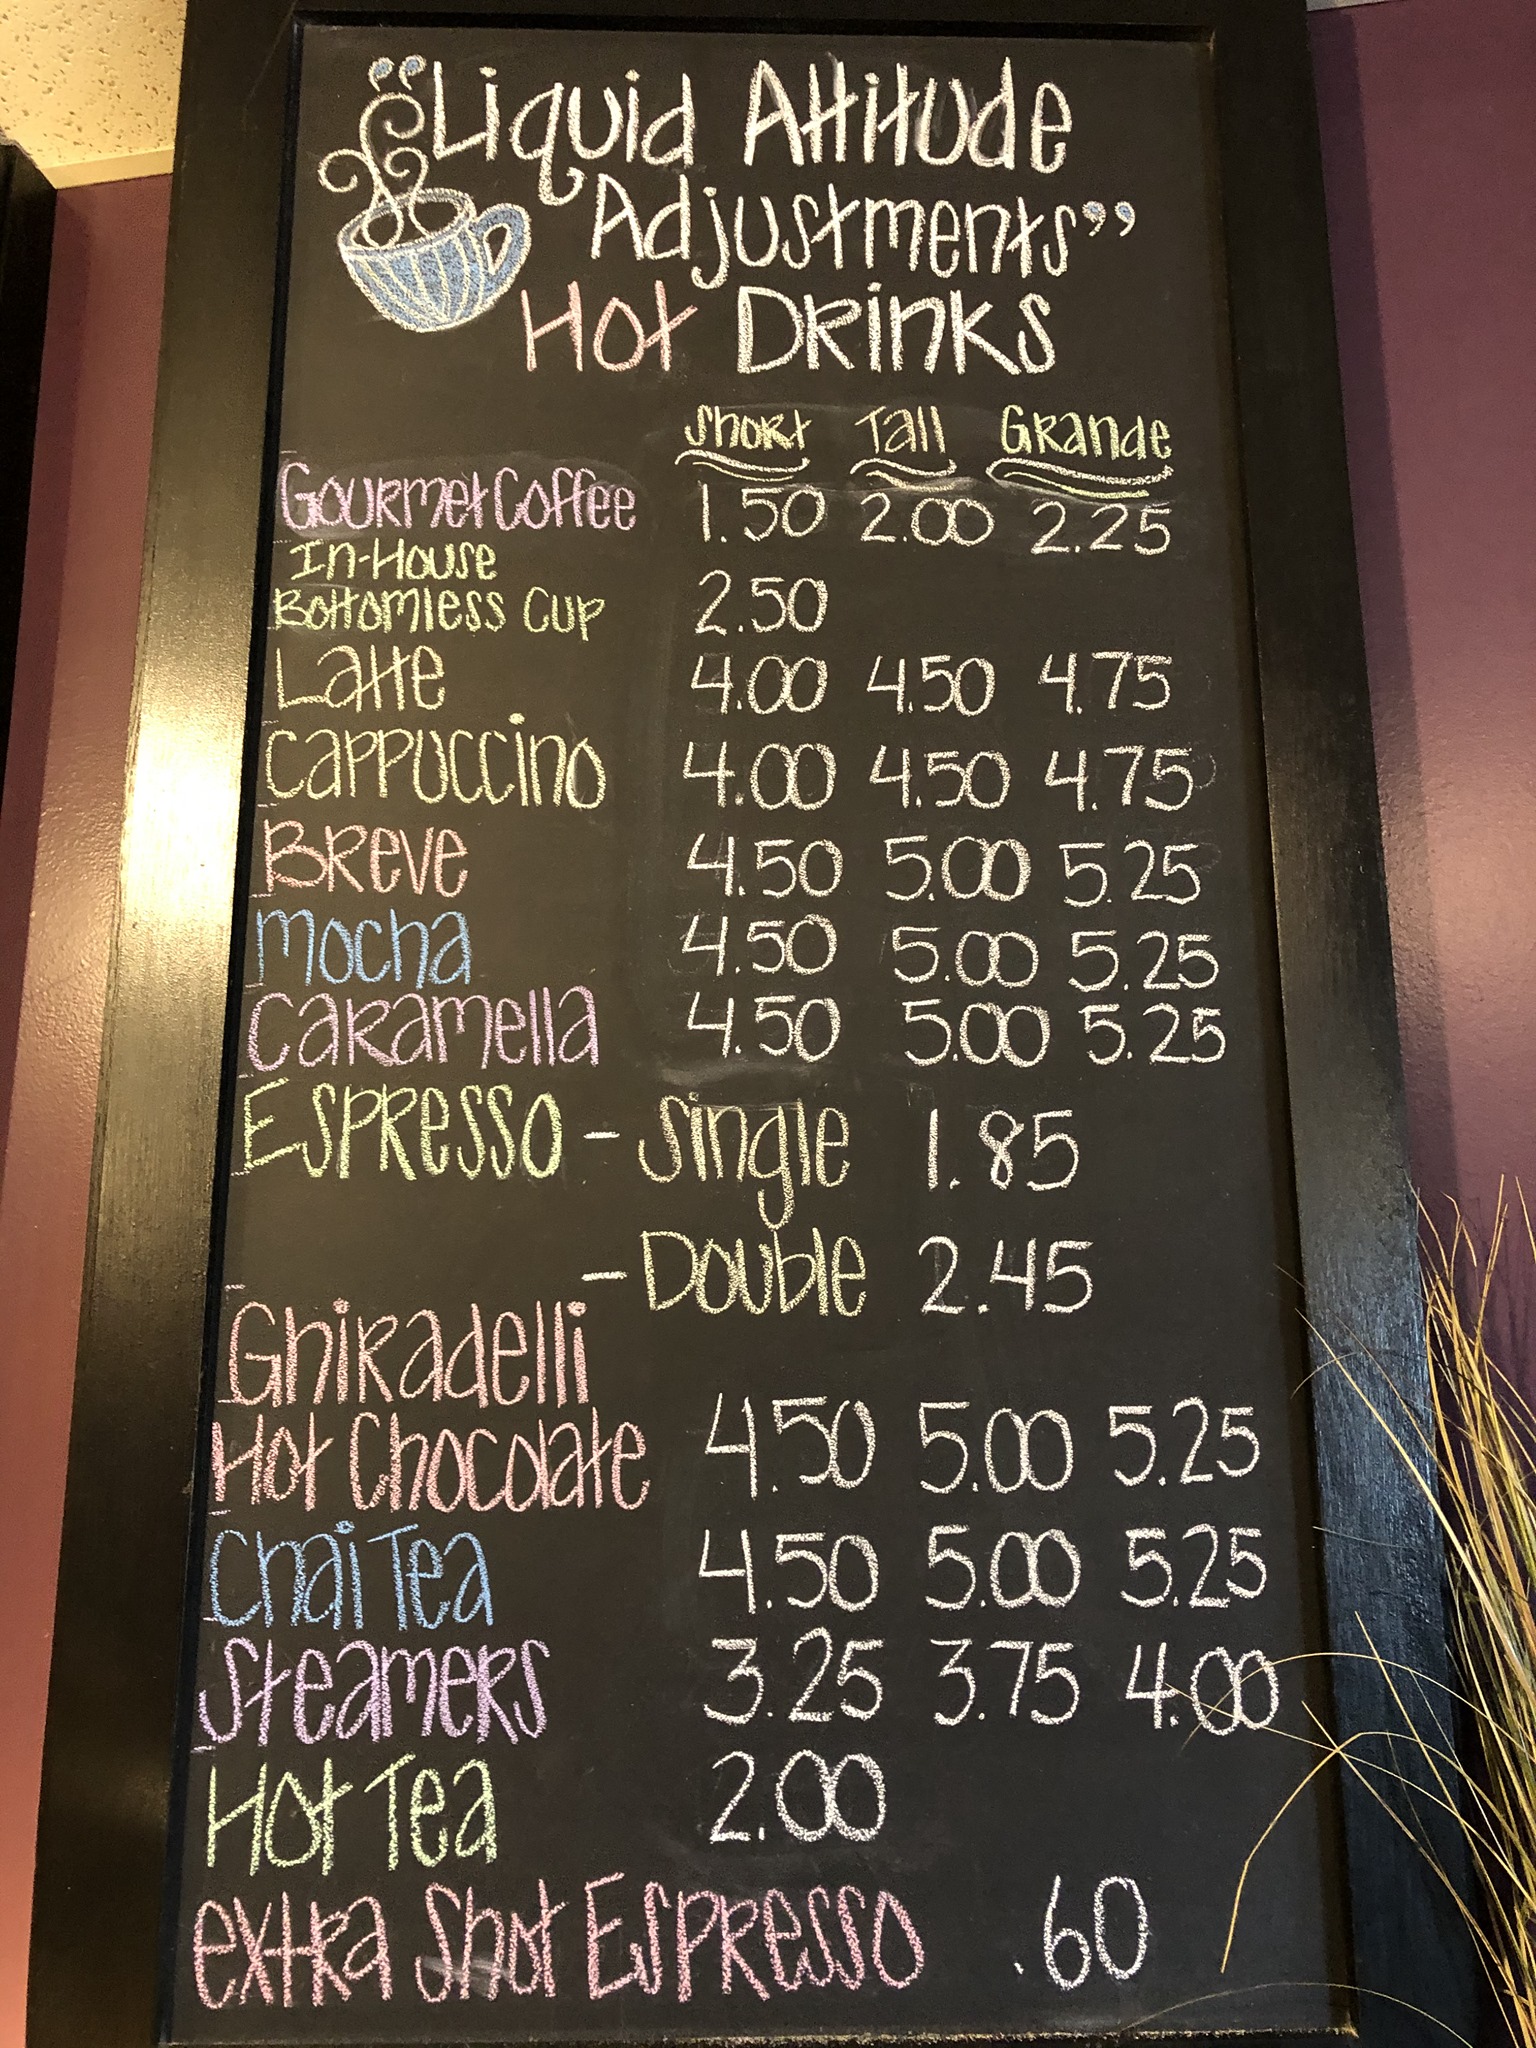 "Liquid Attitude
Adjustments"
Hot Drinks
Short Tall Grande
Gourmet Coffee 1.50 2.00 2.25
In-House
Bottomless Cup 2.50
Latte 4.00 4.50 4.75
Cappuccino 4.00 4.50 4.75
Breve 4.50 5.00 5.25
Mocha 4.50 5.00 5.25
Caramella 4.50 5.00 5.25
Espresso - Single 1.85
- Double 2.45
Ghiradelli
Hot Chocolate 4.50 5.00 5.25
Chai Tea 4.50 5.00 5.25
Steamers 3.25 3.75 4.00
Hot Tea 2.00
extra Shot Espresso .60